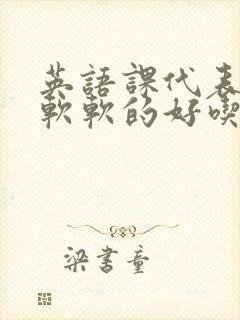 英語課代表
軟軟的好喫
梁書童